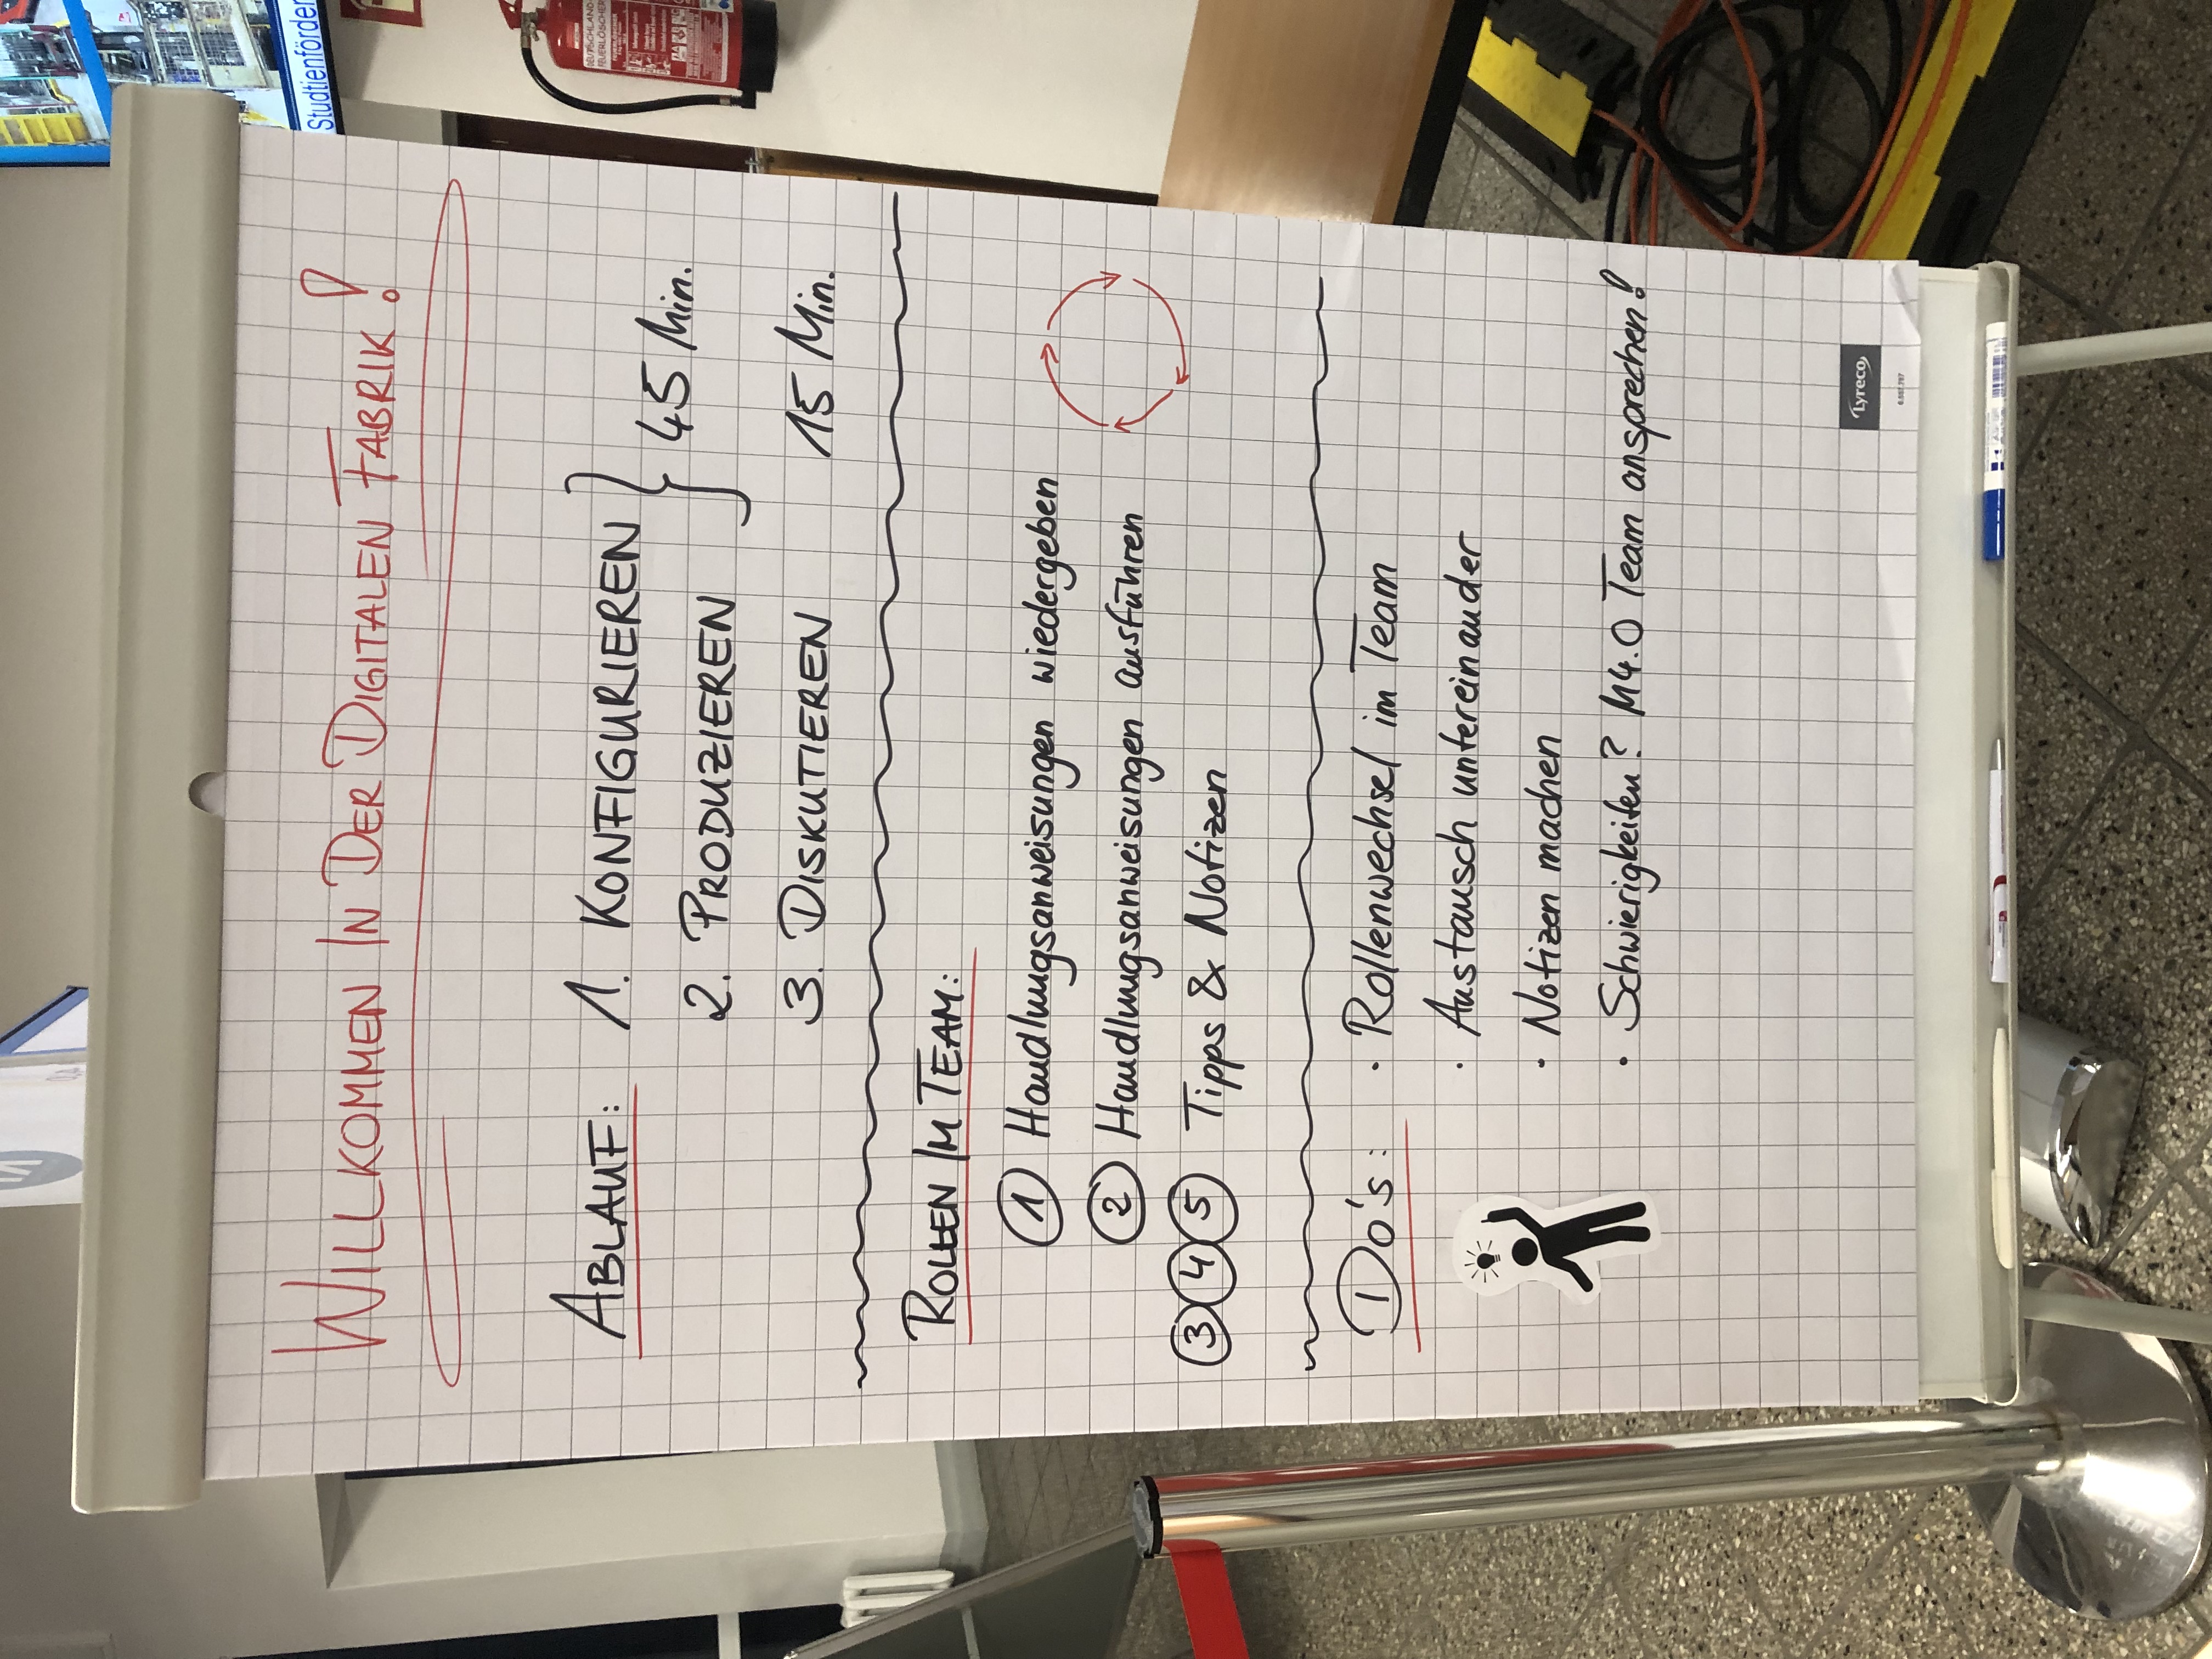 WILLKOMMEN IN DER DIGITALEN FABRIK!
ABLAUF: 1. KONFIGURIEREN } 45 Min.
2. PRODUZIEREN
3. DISKUTIEREN 15 Min.
ROLLEN IM TEAM:
1 Handlungsanweisungen wiedergeben
2 Handlungsanweisungen ausführen
3 4 5 Tipps & Notizen
DO's: · Rollenwechsel im Team
· Austausch untereinander
· Notizen machen
· Schwierigkeiten? M4.0 Team ansprechen!
Lyreco
Studienförder
FEUERLÖSCHER